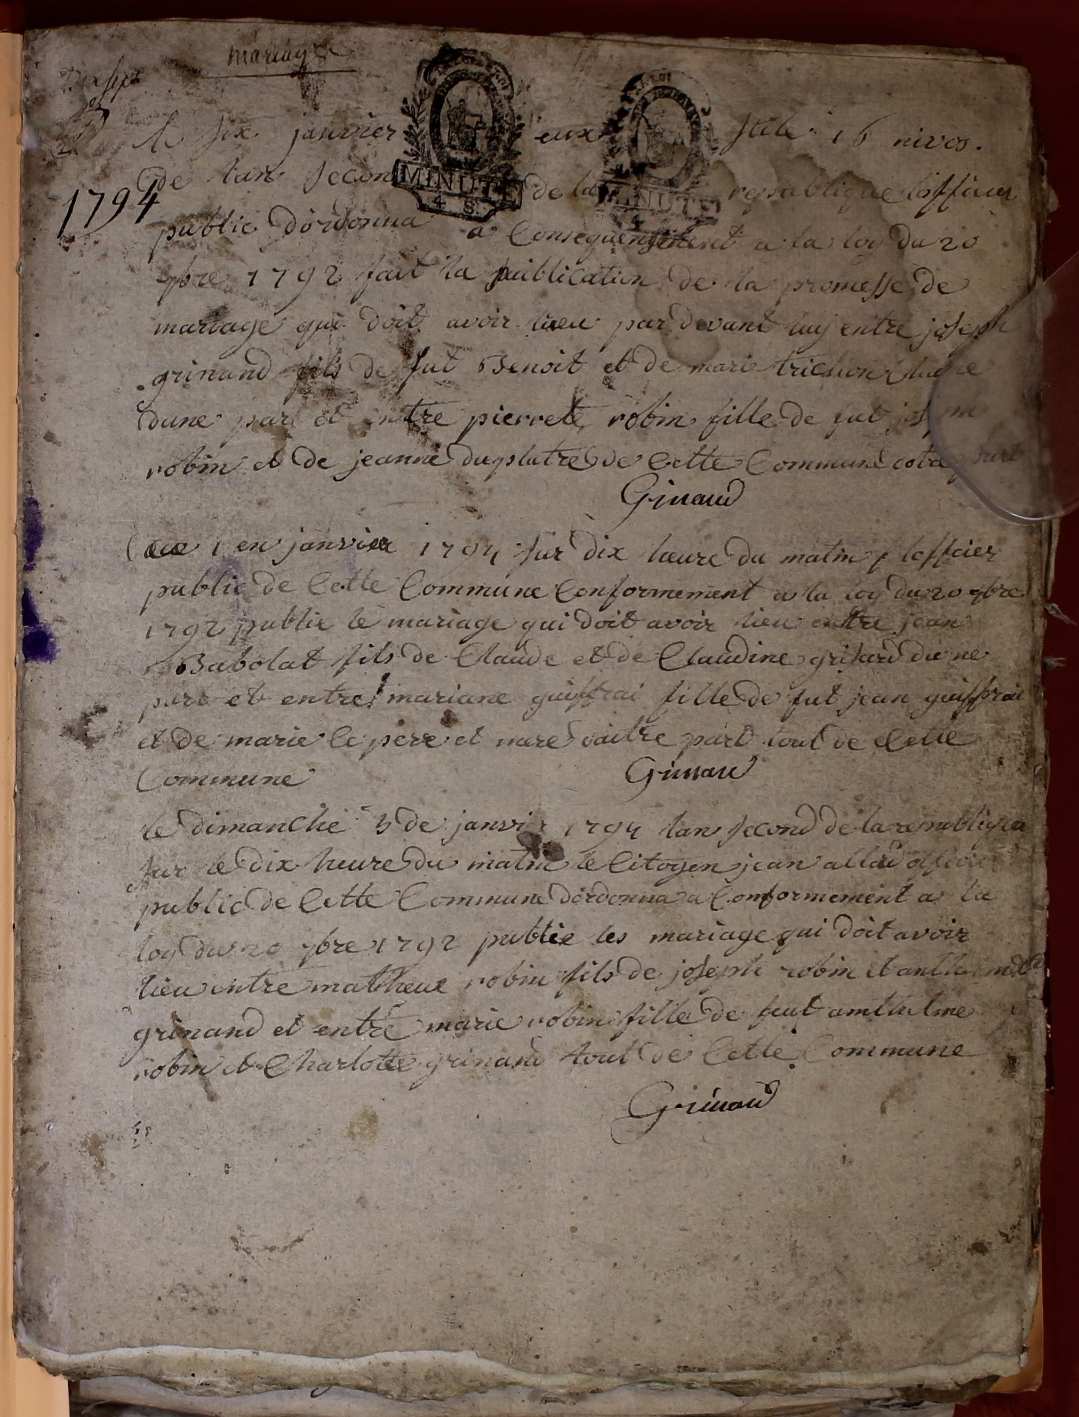 mariage
Dix sept
1794
le six janvier vieux stile 16 nivos.
MINUTE
4 S
MINUTE
de lan second de la republique lofficier
public dordonna a Consequenment a la loy du 20
7bre 1792 fait la publication de la promesse de
mariage qui doit avoir lieu par devant luy entre joseph
grinand fils de fut Benoit et de marie
dune part et entre pierrete robin fille de fut joseph
robin et de jeanne duplatre de Cette Commune part
Ginand
1 en janvier 1794 sur dix heure du matin lofficier
public de Cette Commune Conformement a la loy du 20 7bre
1792 publie le mariage qui doit avoir lieu entre jean
Babolat fils de Claude et de Claudine grifard dune
part et entre mariane guiffrai fille de fut jean guiffrai
et de marie le pere et mare part tout de Cette
Commune
Ginand
le dimanche 5 de janvie 1794 lan second de la republiqu
sur le dix heure du matin le Citoyen jean officie
public de Cette Commune dordonna a Conformement a la
loy du 20 7bre 1792 publie les mariage qui doit avoir
lieu entre mathieu robin fils de joseph robin et
grinand et entre marie robin fille de feut anthelme
robin et Charlotte grinand tout de Cette Commune
Grinand